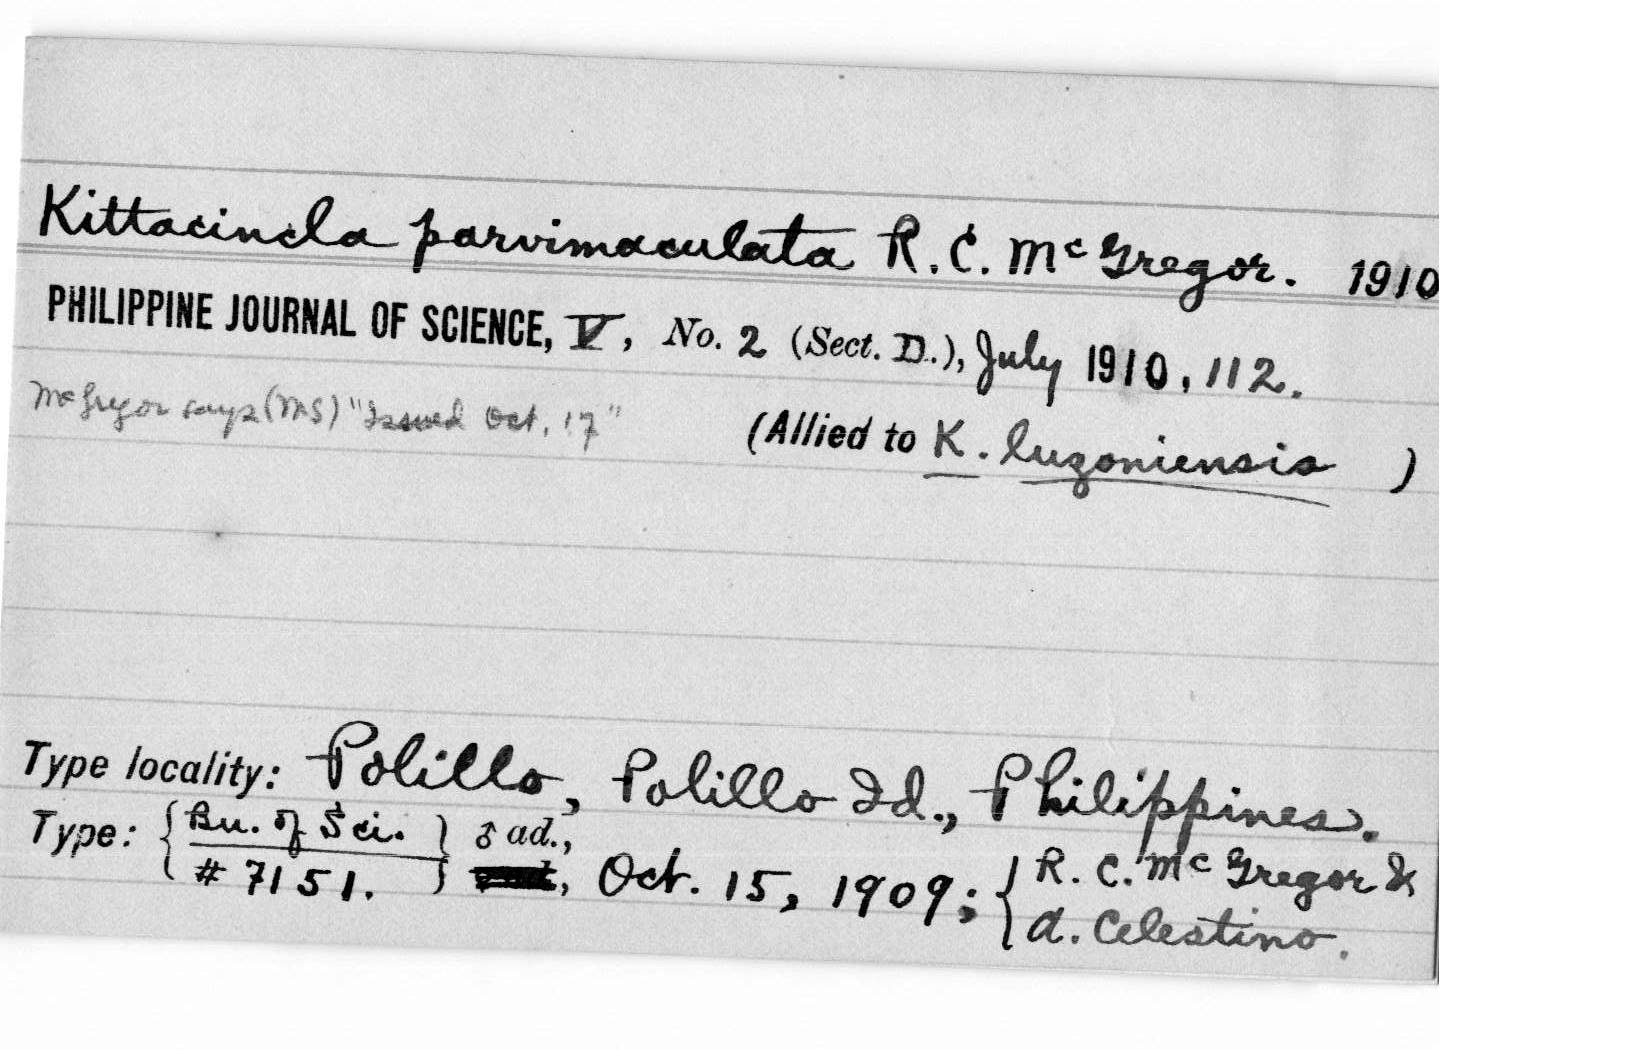 Kittacincla parvimaculata R. C. McGregor. 1910
PHILIPPINE JOURNAL OF SCIENCE, V, No. 2 (Sect. D.), July 1910, 112.
McGregor says (MS) "Issued Oct. 17"
(Allied to K. luzoniensis )
Type locality: Polillo, Polillo Id., Philippines.
Type: { Bu. of Sci. } ♂ ad.,
# 7151. , Oct. 15, 1909; { R. C. McGregor &
A. Celestino.